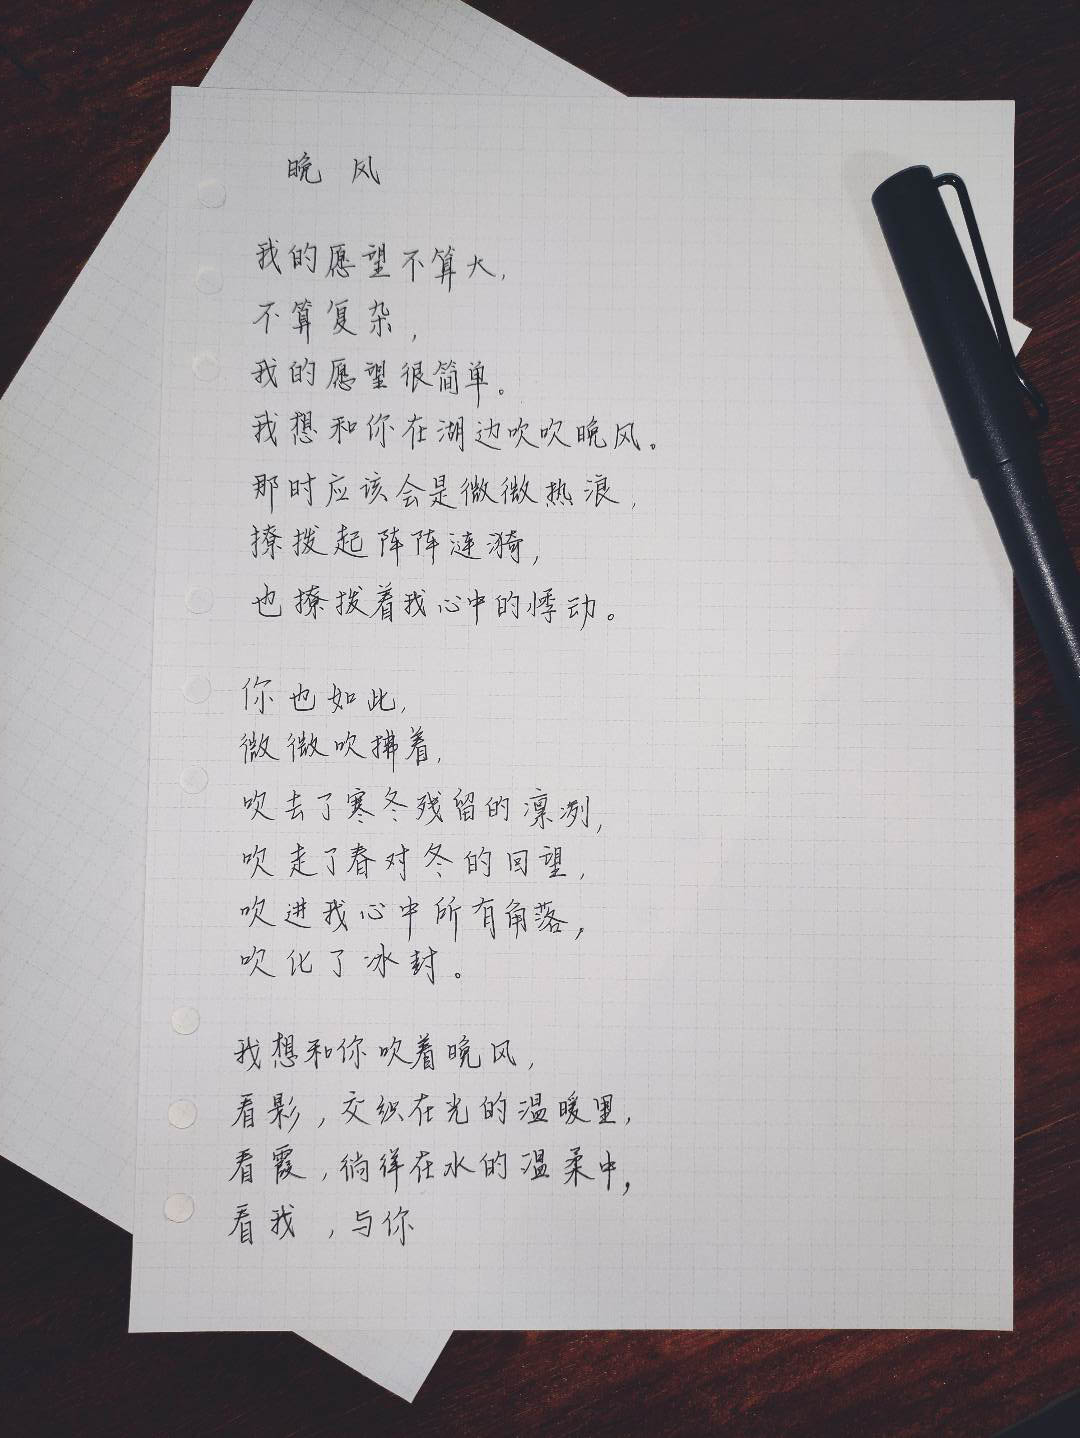 晚风
我的愿望不算大,
不算复杂,
我的愿望很简单。
我想和你在湖边吹吹晚风。
那时应该会是微微热浪,
撩拨起阵阵涟漪,
也撩拨着我心中的悸动。
你也如此,
微微吹拂着,
吹去了寒冬残留的凛冽,
吹走了春对冬的回望,
吹进我心中所有角落,
吹化了冰封。
我想和你吹着晚风,
看影,交织在光的温暖里,
看霞,徜徉在水的温柔中,
看我,与你